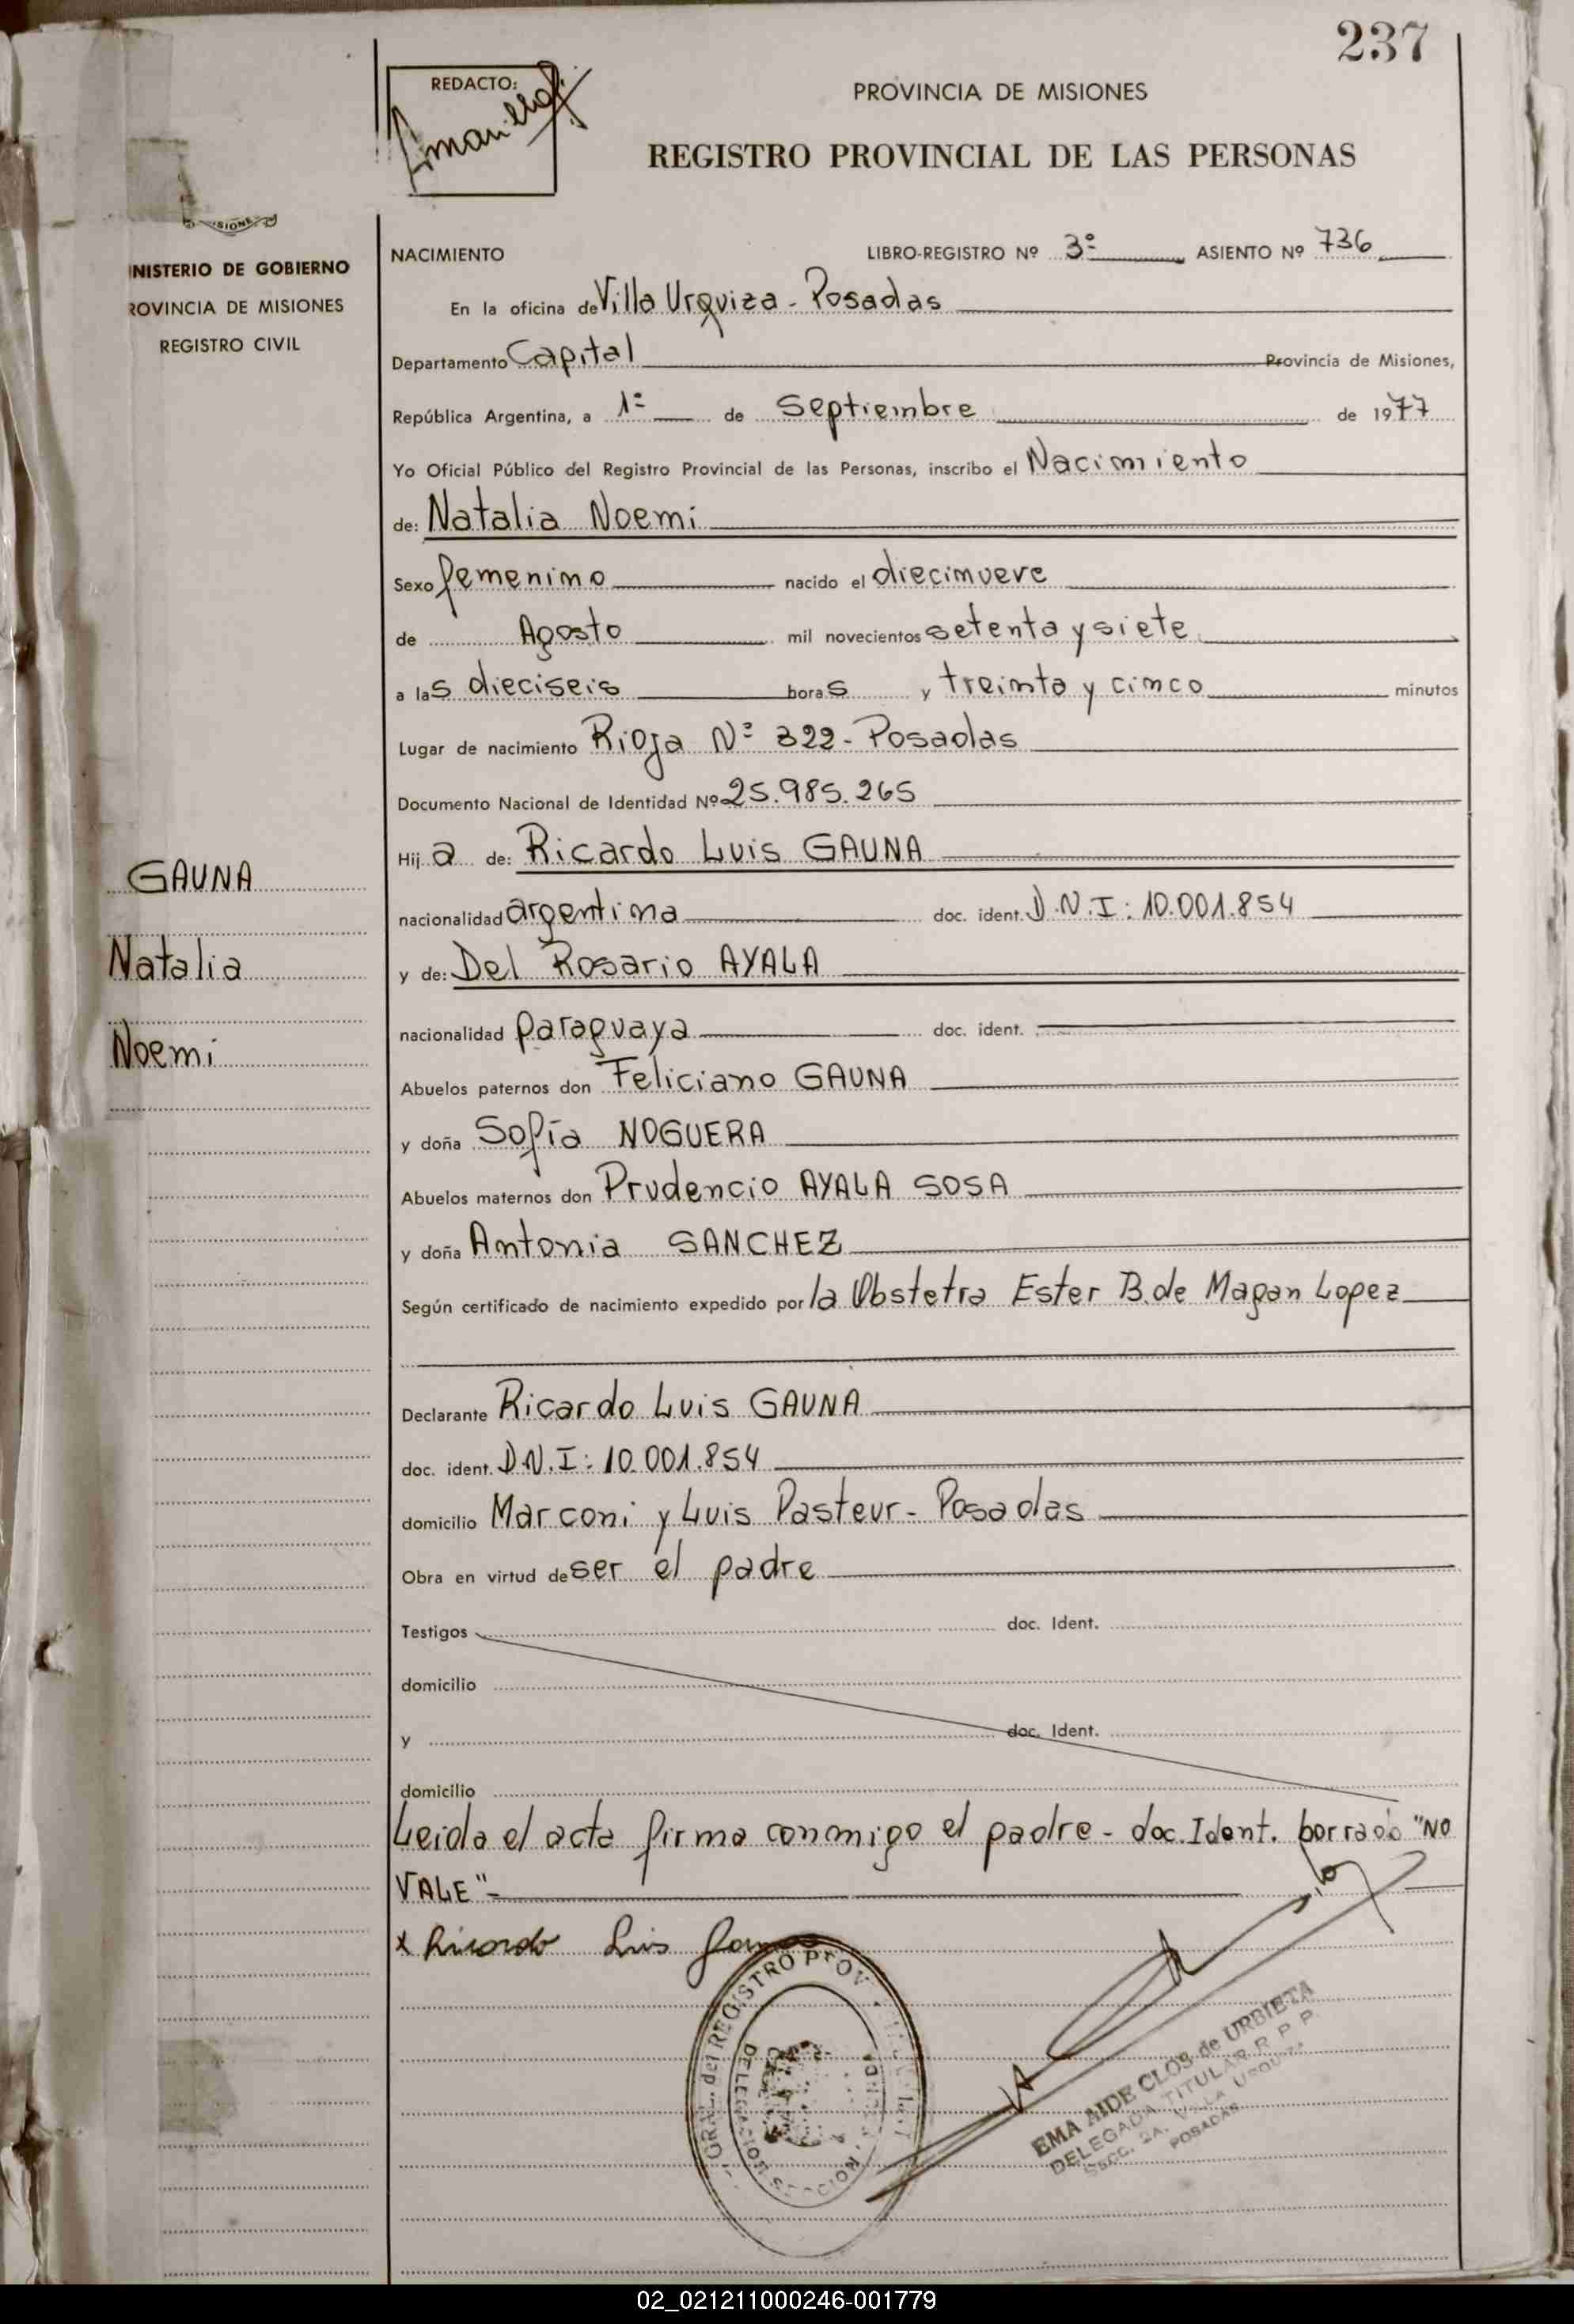 237
REDACTO:
PROVINCIA DE MISIONES
REGISTRO PROVINCIAL DE LAS PERSONAS
INISTERIO DE GOBIERNO
ROVINCIA DE MISIONES
REGISTRO CIVIL
NACIMIENTO LIBRO-REGISTRO Nº 3º ASIENTO Nº 736
En la oficina de Villa Urquiza - Posadas
Departamento Capital Provincia de Misiones,
República Argentina, a 1º de Septiembre de 1977
Yo Oficial Público del Registro Provincial de las Personas, inscribo el Nacimiento
de: Natalia Noemi
Sexo femenino nacido el diecinueve
de Agosto mil novecientos setenta y siete
a las dieciseis horas y treinta y cinco minutos
Lugar de nacimiento Rioja Nº 322 - Posadas
Documento Nacional de Identidad Nº 25.985.265
Hij a de: Ricardo Luis GAUNA
nacionalidad argentina doc. ident. D.N.I: 10.001.854
y de: Del Rosario AYALA
nacionalidad paraguaya doc. ident.
Abuelos paternos don Feliciano GAUNA
y doña Sofía NOGUERA
Abuelos maternos don Prudencio AYALA SOSA
y doña Antonia SANCHEZ
Según certificado de nacimiento expedido por la Obstetra Ester B. de Magan Lopez
Declarante Ricardo Luis GAUNA
doc. ident. D.N.I: 10.001.854
domicilio Marconi y Luis Pasteur - Posadas
Obra en virtud de ser el padre
Testigos doc. Ident.
domicilio
y doc. Ident.
domicilio
Leida el acta firma conmigo el padre - doc. Ident. borrado "NO
VALE" -
x Ricardo Luis Gauna
GAUNA
Natalia
Noemi
GRAL. del REGISTRO PROV
EMA AIDE CLOS de URBIETA
DELEGADA TITULAR R P P
Secc. 2A. VILLA URQUIZA
POSADAS
02_021211000246-001779